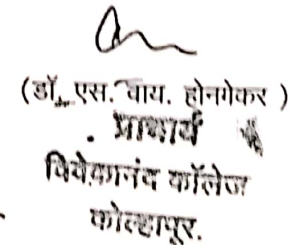 (डॉ. एस. वाय. होनगेकर )
प्राचार्य
विवेकानंद कॉलेज
कोल्हापूर.